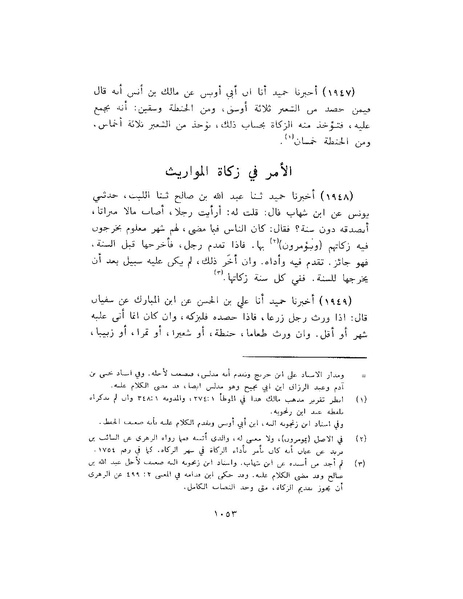 (١٩٤٧) أخبرنا حميد أنا ابن أبي أويس عن مالك بن أنس أنه قال
فيمن حصد من الشعير ثلاثة أوسق، ومن الحنطة وسقين: أنه يجمع
عليه، فتؤخذ منه الزكاة بحساب ذلك، يؤخذ من الشعير ثلاثة أخماس،
ومن الحنطة خمسان(١).
الأمر في زكاة المواريث
(١٩٤٨) أخبرنا حميد ثنا عبد الله بن صالح ثنا الليث، حدثني
يونس عن ابن شهاب قال: قلت له: أرأيت رجلا، أصاب مالا ميراثا،
أيصدقه دون سنة؟ فقال: كان الناس فيما مضى، لهم شهر معلوم يخرجون
فيه زكاتهم (ويؤمرون)(٢) بها. فاذا تقدم رجل، فأخرجها قبل السنة،
فهو جائز. تقدم فيه وأداه. وان أخّر ذلك، لم يكن عليه سبيل بعد أن
يخرجها للسنة. ففي كل سنة زكاتها.(٣)
(١٩٤٩) أخبرنا حميد أنا علي بن الحسن عن ابن المبارك عن سفيان
قال: اذا ورث رجل زرعا، فاذا حصده فليزكه، وان كان انما أتى عليه
شهر أو أقل. وان ورث طعاما، حنطة، أو شعيرا، أو تمرا، أو زبيبا،
= ومدار الاسناد على ابن جريج وتقدم أنه مدلس، فيضعف لأجله. وفي اسناد يحيى بن
آدم وعبد الرزاق ابن أبي نجيح وهو مدلس ايضا، قد مضى الكلام عليه.
(١) انظر تقرير مذهب مالك هذا في الموطأ ١: ٢٧٤، والمدونة ١: ٣٤٨ وان لم يذكراه
بلفظه عند ابن زنجويه.
وفي اسناد ابن زنجويه اليه، ابن أبي أويس وتقدم الكلام عليه بأنه ضعيف الحفظ.
(٢) في الاصل (يومرون)، ولا معنى له، والذي أثبته فيما رواه الزهري عن السائب بن
يزيد عن عثمان أنه كان يأمر بأداء الزكاة في شهر الزكاة. كما في رقم ١٧٥٤.
(٣) لم أجد من أسنده عن ابن شهاب. واسناد ابن زنجويه اليه ضعيف لأجل عبد الله بن
صالح وقد مضى الكلام عليه. وقد حكى ابن قدامة في المغني ٢: ٤٩٩ عن الزهري
أن يجوز تقديم الزكاة، متى وجد النصاب الكامل.
١٠٥٣